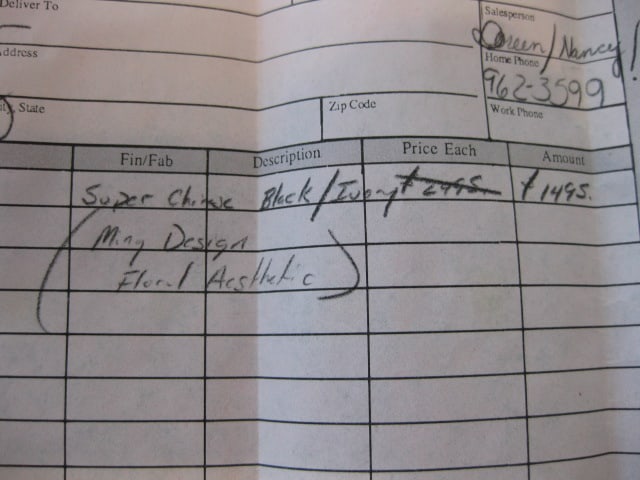 Deliver To
Salesperson
Doreen/Nancy
Address
Home Phone
962-3599
City, State
Zip Code
Work Phone
Fin/Fab Description Price Each Amount
Super Chinese Black/Ivory $1495.
Ming Design
Floral Aesthetic